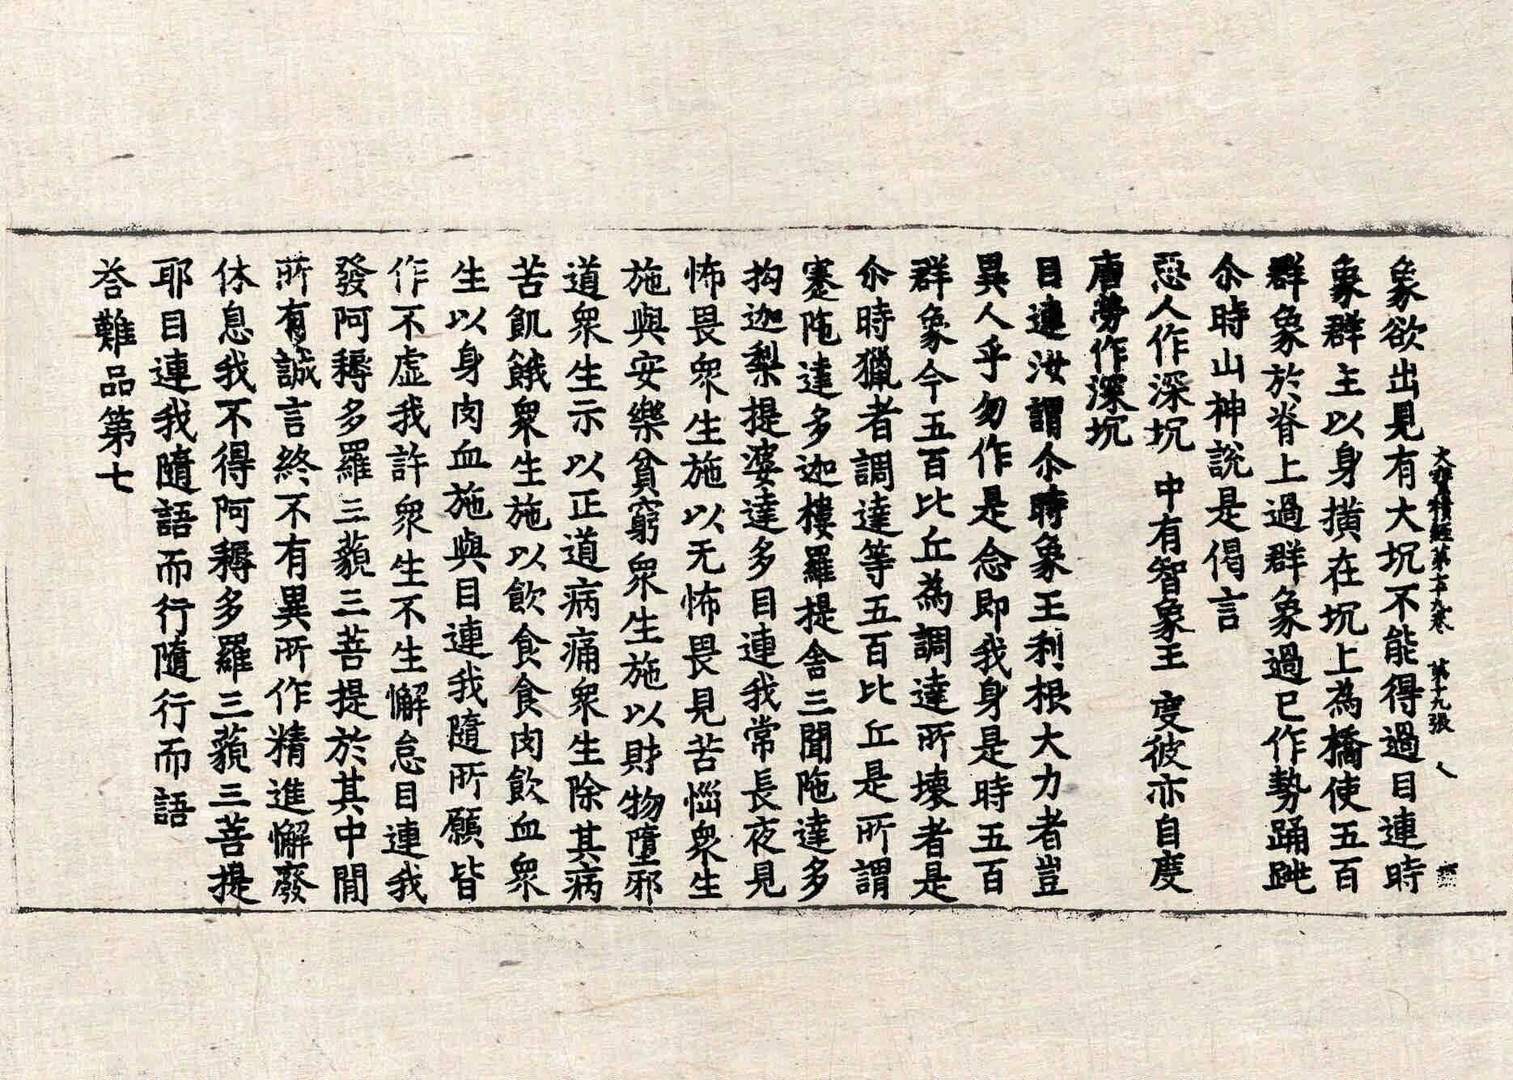 大寶積經第七十九卷　第十九張　人
象欲出見有大坑不能得過目連時
象群主以身撗在坑上為橋使五百
群象於脊上過群象過已作勢踊跳
尒時山神說是偈言
惡人作深坑　中有智象王　度彼亦自度
唐勞作深坑
目連汝謂尒時象王利根大力者豈
異人乎勿作是念即我身是時五百
群象今五百比丘為調達所壞者是
尒時獵者調達等五百比丘是所謂
蹇陁達多迦樓羅提舍三聞陁達多
拘迦梨提婆達多目連我常長夜見
怖畏衆生施以无怖畏見苦惱衆生
施與安樂貧窮衆生施以財物墮邪
道衆生示以正道病痛衆生除其病
苦飢餓衆生施以飲食食肉飲血衆
生以身肉血施與目連我隨所願皆
作不虛我許衆生不生懈怠目連我
發阿耨多羅三藐三菩提於其中間
所有誠言終不有異所作精進懈廢
休息我不得阿耨多羅三藐三菩提
耶目連我隨語而行隨行而語
荅難品第七